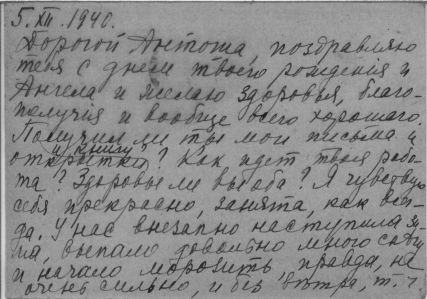 5. XII. 1940.
Дорогой Антоша, поздравляю
тебя с днем твоего рождения и
Ангела и желаю здоровья, благо-
получия и вообще всего хорошаго.
Получил ли ты мои письма и
и книги?
открытки? Как идет твоя рабо-
та? Здоровы ли вы оба? Я чувствую
себя прекрасно, занята, как все-
да. У нас внезапно наступила зи-
ма, выпало довольно много снегу
и начало морозить правда, не
очень сильно, и без ветра, т. ч.